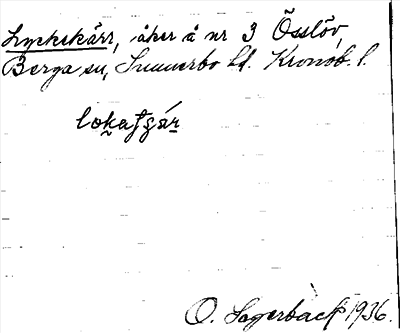 Lyckekärr, åker å nr 3 Össlöv,
Berga sn, Sunnerbo hd. Kronob. l.
O. Sagerbäck 1936.